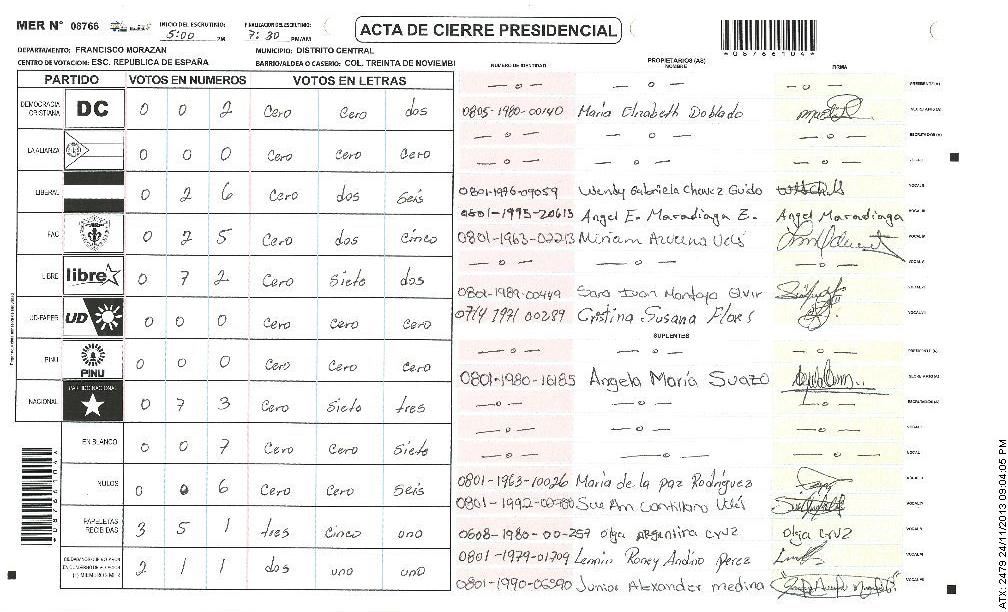 MER N° 08766
INICIO DEL ESCRUTINIO: 5:00 PM
FINALIZACION DEL ESCRUTINIO: 7:30 PM/AM
ACTA DE CIERRE PRESIDENCIAL
*08766104*
DEPARTAMENTO: FRANCISCO MORAZAN
MUNICIPIO: DISTRITO CENTRAL
CENTRO DE VOTACION: ESC. REPUBLICA DE ESPAÑA
BARRIO/ALDEA O CASERIO: COL. TREINTA DE NOVIEMBI
NUMERO DE IDENTIDAD
PROPIETARIOS (AS)
NOMBRE
FIRMA
PARTIDO VOTOS EN NUMEROS VOTOS EN LETRAS
DEMOCRACIA CRISTIANA DC 0 0 2 Cero Cero dos
LA ALIANZA 0 0 0 Cero Cero Cero
LIBERAL 0 2 6 Cero dos Seis
FAC 0 2 5 Cero dos Cinco
LIBRE libre 0 7 2 Cero Siete dos
UD-FAPER UD 0 0 0 Cero Cero Cero
PINU PINU 0 0 0 Cero Cero Cero
NACIONAL PARTIDO NACIONAL 0 7 3 Cero Siete tres
EN BLANCO 0 0 7 Cero Cero Siete
NULOS 0 0 6 Cero Cero Seis
PAPELETAS RECIBIDAS 3 5 1 tres Cinco uno
2 1 1 dos uno uno
0805-1980-00140 Maria Elizabeth Doblado
0801-1996-09059 Wendy Gabriela Chavez Guido
0801-1995-20613 Angel E. Maradiaga Z. Angel Maradiaga
0801-1963-02213 Miriam
0801-1989-00449 Sara
0714 1971 00289 Cristina Susana Flores
SUPLENTES
0801-1980-16185 Angela María Suazo
0801-1963-10026 Maria de la paz Rodríguez
0801-1992- Sue Am
0608-1980-00-257 olga Argentina cruz olga Cruz
0801-1979-01709 Lennin Roney Andino Perez
0801-1990-06590 Junior Alexander medina
ATX 2479 24/11/2013 09:04:05 PM